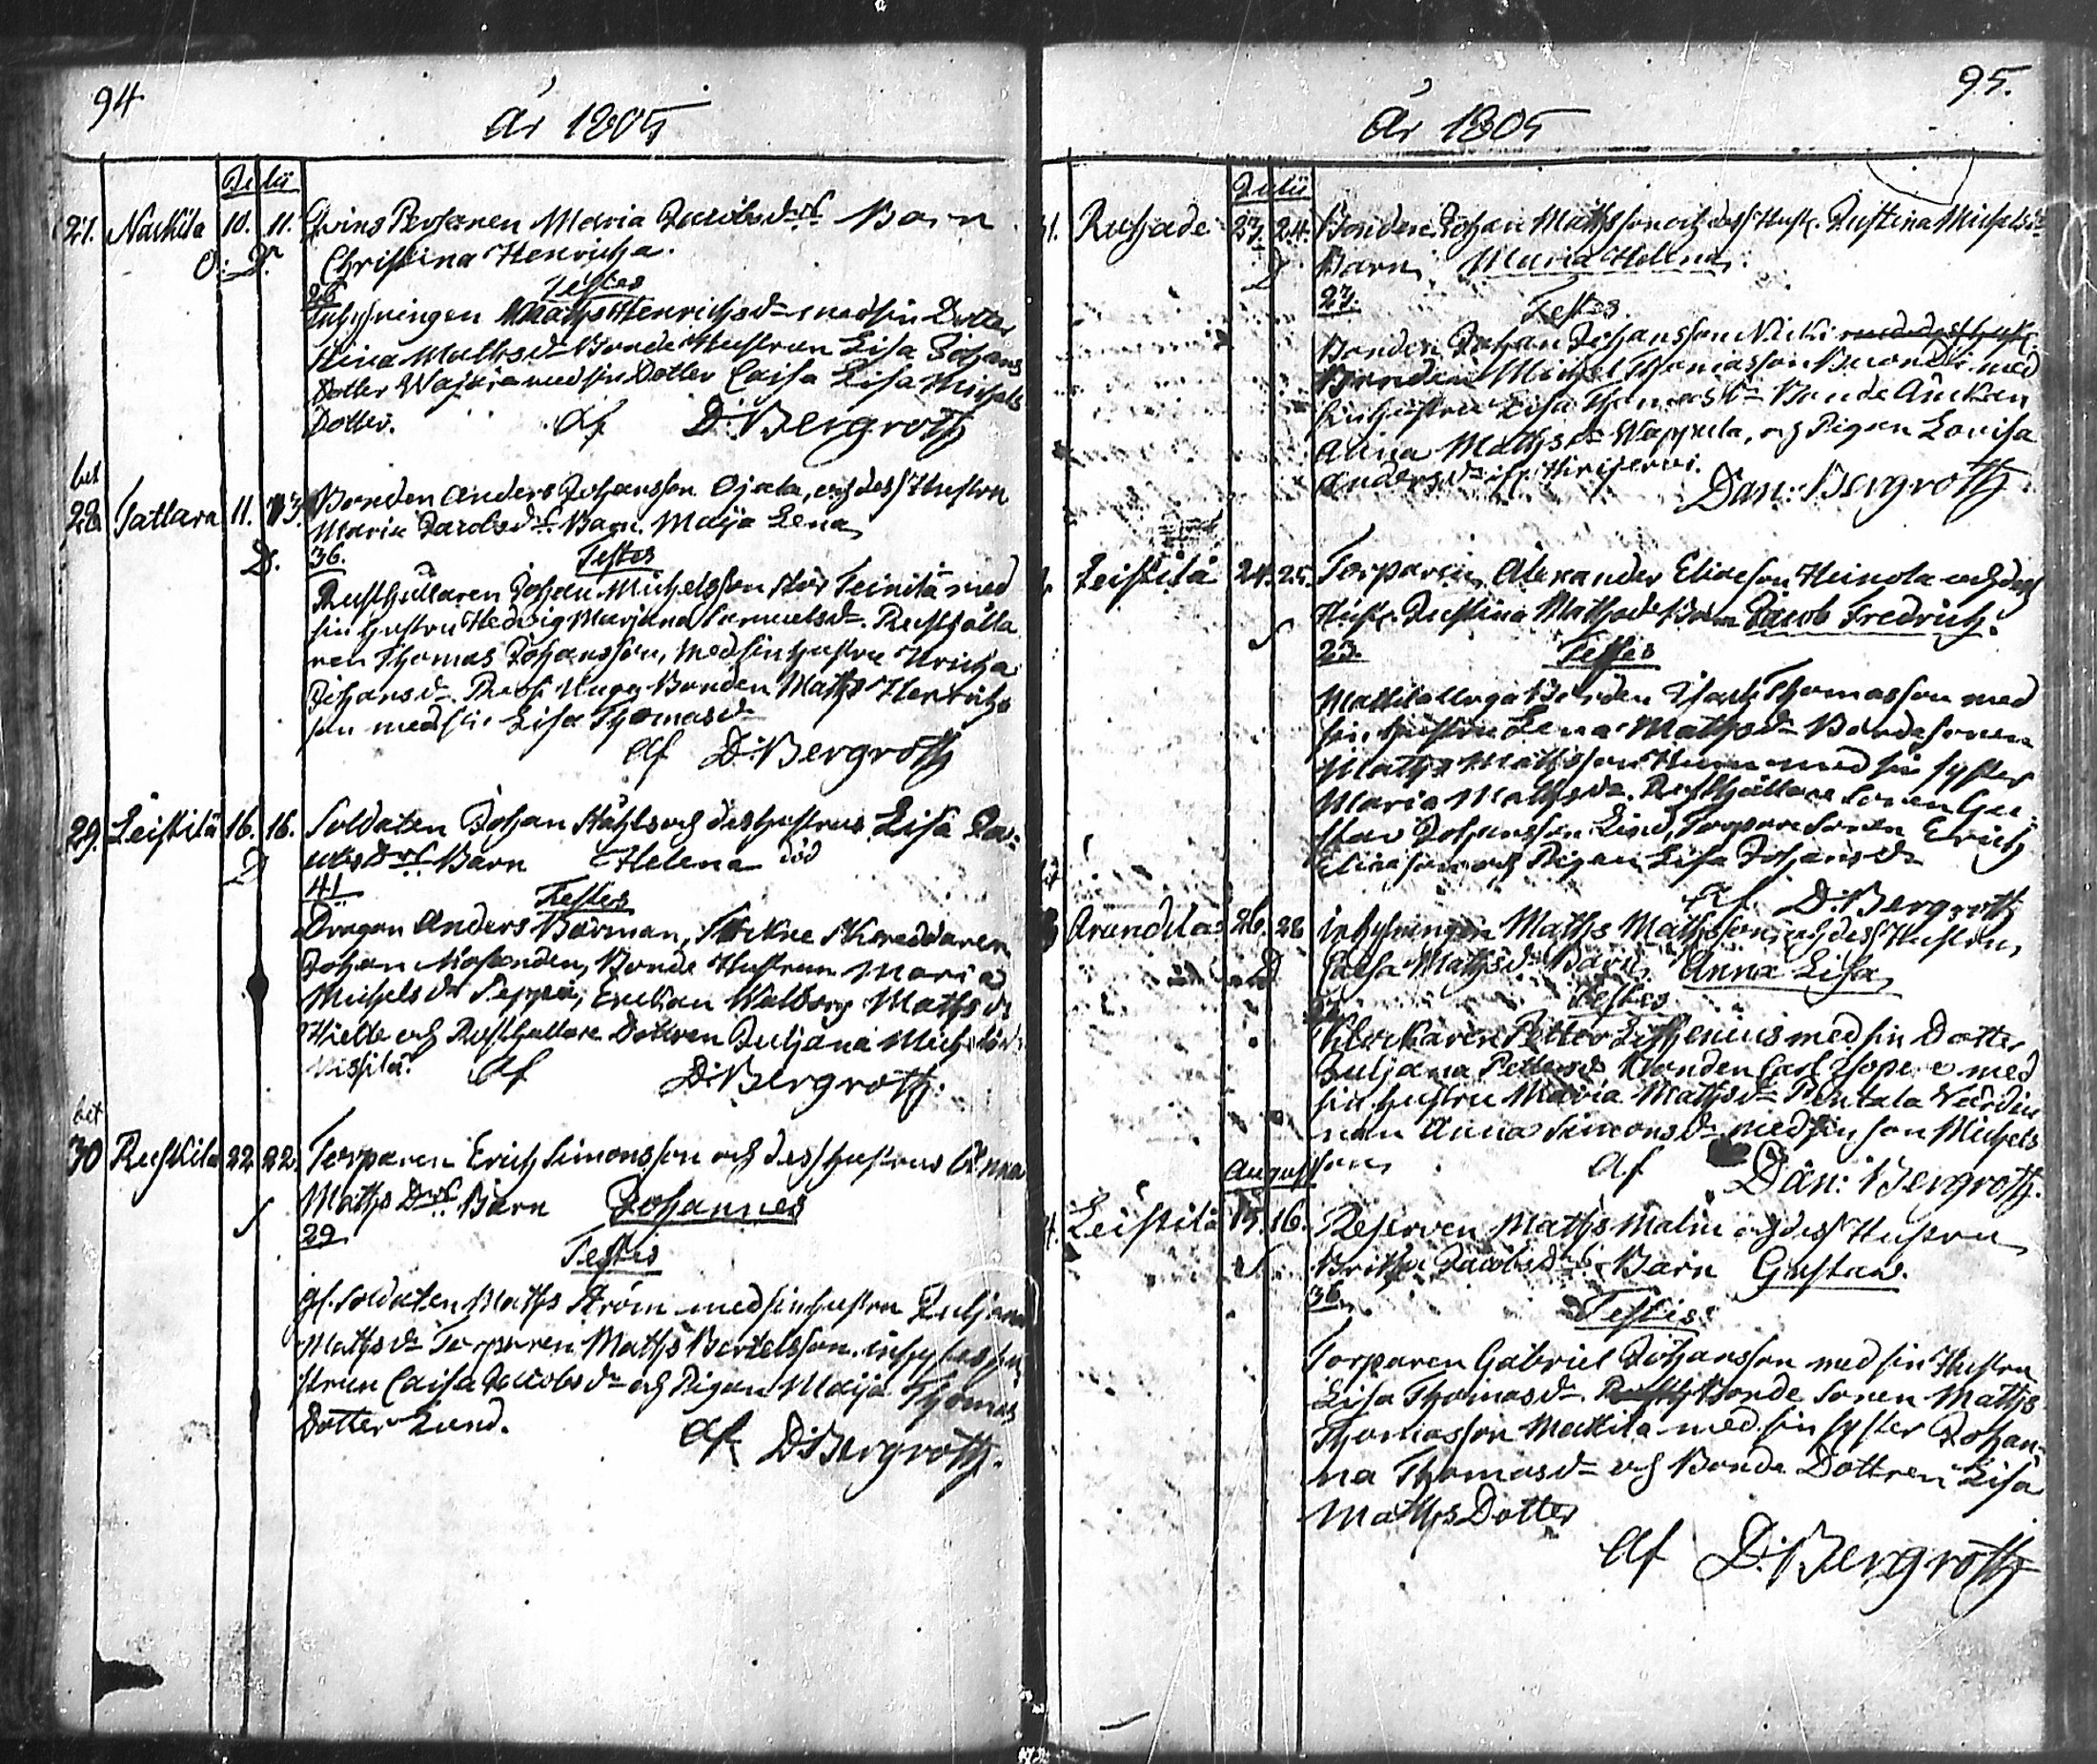 94
År 1805
Julii
27. Nackila 10. 11. Qvins Personen Maria Jacobsdrs Barn
O: D. Christina Henricha.
26 Testes
Inhysningen Maths Henrichsd. med sin Dotter
Stina Mathsd. Bonde Hustrun Lisa Johans
Dotter Wajaria med sin Dotter Caisa Lisa Michels
Dotter. Af D: Bergroth
bet
28 Tattara 11. 13. Bonden Anders Johansson Ojala, och dess Hustru
Maria Jacobsdrs Barn. Maija Lena
D. 36. Testes
Rusthållaren Johan Michelsson Stor Teinilä med
sin hustru Hedvig Marjana Samuelsdr. Rusthålla
ren Thomas Johansson, med sin hustru Ulricha
Johansdr. Bonden Maths Henrichs
son med sin Lisa Thomasdr
Af D: Bergroth
29. Leistilä 16. 16. Soldaten Johan Ståhls och des hustrus Lisa Ja-
cobs Drs Barn Helena död
D 41 Testes
Dragon Anders Börman, Sockne Skreddaren
Johan, Bonde Hustrun Maria
Michelsdr Seppä, Enckan Walborg Mathsdr
Hielte och Rusthållare Dottren Juljana Michelsdr
Vissilä. Af D: Bergroth:
bet
30 Rustkila 22 22. Torparen Erich Simonsson och dess hustrus Anna
Maths Drs. Barn Johannes
S 29 Testis
gl. Soldaten Maths Ström med sin hustru Juljana
Mathsdr Torparen Maths Bertelsson. inhyses hu
strun Caisa Jacobsdr och Pigan Maija Thomas
Dotter Lund.
Af D: Bergroth.
95.
År 1805
Julii
31. Rutsade 23. 24. Bonden Johan Mathsson och dess Hust. Justina Michelsdr
D Barn, Maria Helena.
27. Testes
Bonden Johan Johansson Nicki med dess hust.
Bonden Michel Thomasson med
sin hustru Lisa Thomasdr Bonde Änckan
Anna Mathsdr Wappula, och Pigan Lovisa
Andersdr ifr. Hirijervi.
Dan: Bergroth
Leistilä 24. 25. Torparen Alexander Eliaeson Heinola och dess
Hust. Justina Mathsdr Barn Jacob Fredrich.
S 23. Testes
Mattila Bonden Isack Thomasson med
sin hustru Lena Mathsdr Bondesonen
Maths Mathsson med sin syster
Maria Mathsdr. Rusthållare Sonen Gu-
stav Johansson Lind, Torpare Sonen Erich
Eliaeson och Pigan Lisa Johansdr
Af D: Bergroth
Arundila 26. 28 Inhysningen Maths Mathsson och dess Hustru
D Caisa Mathsdr Barn, Anna Lisa
Testes
Klockaren Petter Lithenius med sin Dotter
Juljana Pettersdr Bonden Carl med
sin hustru Maria Mathsdr Pentala Värdin
nan Anna Simonsdr med sin son Michels
son,
Af Dan: Bergroth.
August
Leistilä 15. 16. Reserven Maths Malm och dess Hustru
S Britha Jacobsdrs Barn Gustav.
36. Testis
Torparen Gabriel Johansson med sin Hustru
Lisa Thomasdr. Bonde Sonen Maths
Thomasson Mattila med sin syster Johan-
na Thomasdr och Bonde Dottren Lisa
Maths Dotter
Af D: Bergroth